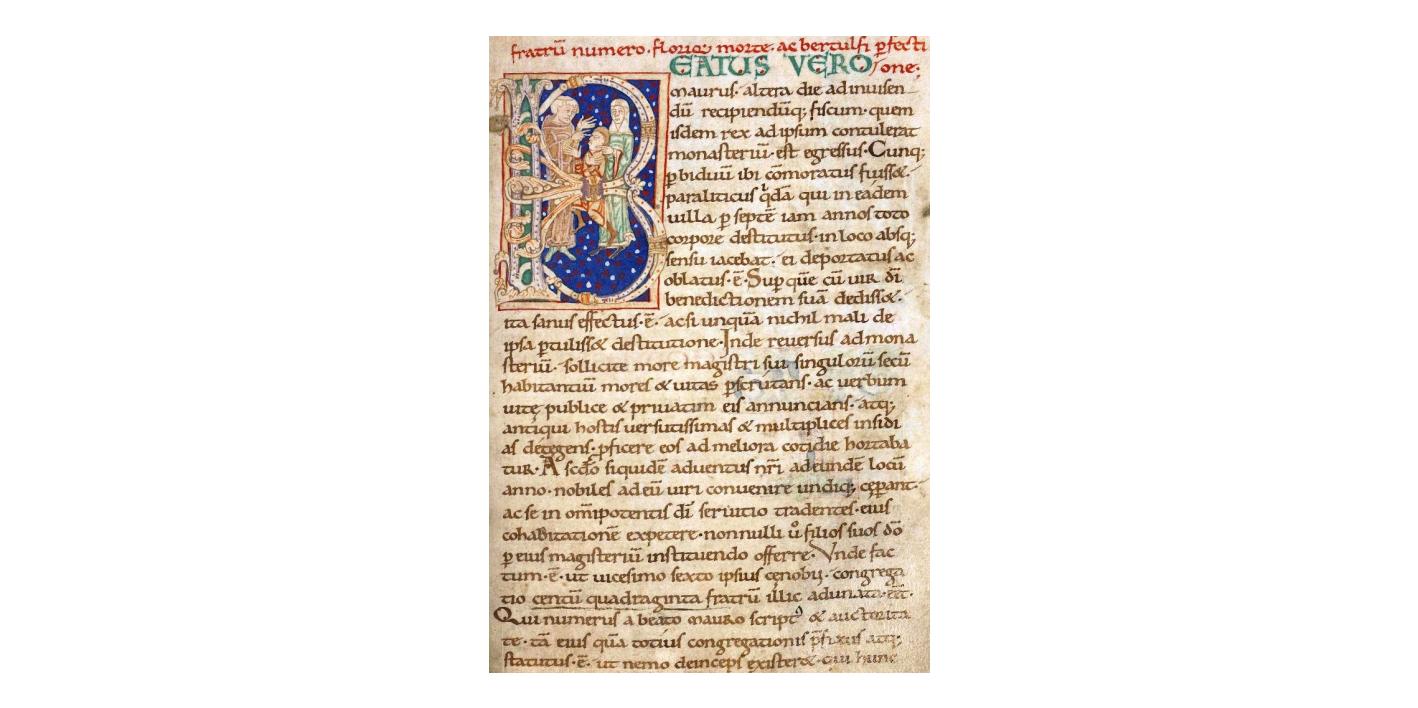 fratrū numero. floriq; morte. ac bertulfi ꝑfecti
BEATUS VERO one;
maurus. altera die ad inuisen
dū recipiendūq; fiscum. quem
isdem rex ad ipsum contulerat
monasteriū. est egressus. Cunq;
ꝑ biduū ibi cōmoratus fuiss&.
paraliticus qͥdā qui in eadem
uilla ꝑ septē iam annos toto
corpore destitutus. in loco absq;
sensu iacebat. ei deportatus ac
oblatus. ē. Suꝑ quē cū uir dī
benedictionem suā dediss&.
ita sanus effectus. ē. ac si unquā nichil mali de
ipsa ꝑtuliss& destitutione. Inde reuersus ad mona
steriū. sollicite more magistri sui singulorū secū
habitantiū mores & uitas ꝑscrutans. ac uerbum
uitę publice & priuatim eis annuncians. atq;
antiqui hostis uersutissimas & multiplices insidi
as detegens. ꝓficere eos ad meliora cotidie hortaba
tur. A scdo siquidē aduentus nr̄i ad eundē locū
anno. nobiles ad eū uiri conuenire undiq; cęꝑant.
ac se in om̄ipotentis dī seruitio tradentes. eius
cohabitationē expetere. nonnulli ů filios suos dō
ꝑ eius magisteriū instituendo offerre. Vnde fac
tum. ē. ut uicesimo sexto ipsius cęnobij. congrega
tio centū quadraginta fratrū illic adunata. eēt.
Qui numerus a beato mauro scriptꝰ & auctorita
te. tā eius quā totius congregationis p̄fixus atq;
statutus. ē. ut nemo deinceps exister&. qui hunc